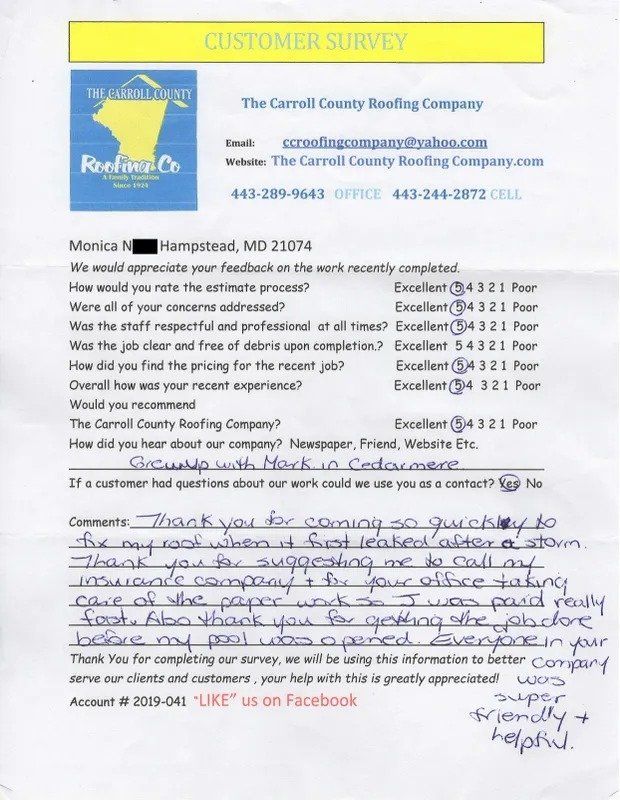 CUSTOMER SURVEY
THE CARROLL COUNTY
Roofing Co
A Family Tradition
Since 1924
The Carroll County Roofing Company
Email: ccroofingcompany@yahoo.com
Website: The Carroll County Roofing Company.com
443-289-9643 OFFICE 443-244-2872 CELL
Monica N Hampstead, MD 21074
We would appreciate your feedback on the work recently completed.
How would you rate the estimate process? Excellent 5 4 3 2 1 Poor
Were all of your concerns addressed? Excellent 5 4 3 2 1 Poor
Was the staff respectful and professional at all times? Excellent 5 4 3 2 1 Poor
Was the job clear and free of debris upon completion.? Excellent 5 4 3 2 1 Poor
How did you find the pricing for the recent job? Excellent 5 4 3 2 1 Poor
Overall how was your recent experience? Excellent 5 4 3 2 1 Poor
Would you recommend
The Carroll County Roofing Company? Excellent 5 4 3 2 1 Poor
How did you hear about our company? Newspaper, Friend, Website Etc.
Grew up with Mark in Cedarmere
If a customer had questions about our work could we use you as a contact? Yes No
Comments: Thank you for coming so quickly to
fix my roof when it first leaked after a storm.
Thank you for suggesting me to call my
insurance company + for your office taking
care of the paper work so I was paid really
fast. Also thank you for getting the job done
before my pool was opened. Everyone in your
company
was
super
friendly +
helpful.
Thank You for completing our survey, we will be using this information to better
serve our clients and customers , your help with this is greatly appreciated!
Account # 2019-041 "LIKE" us on Facebook